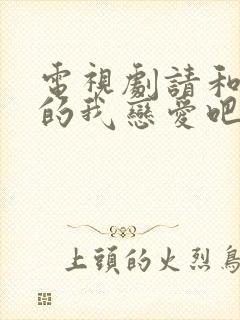 電視劇請和
的我戀愛吧
上頭的火烈鳥